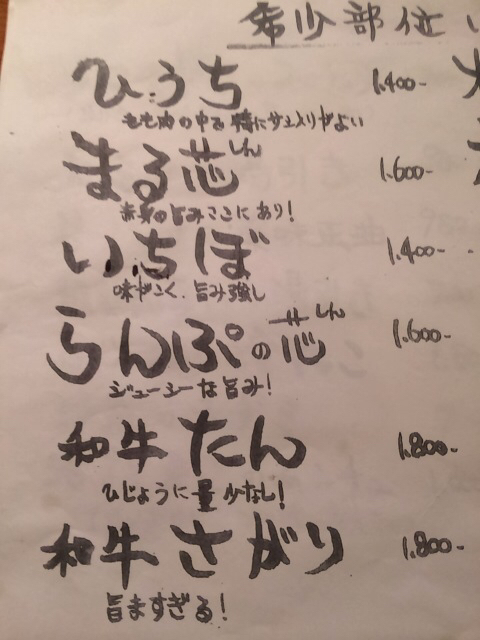 希少部位
ひうち 1.400-
もも肉の中で特にサシ入りがよい
まる芯 しん 1.600-
赤身の旨みここにあり!
いちぼ 1.400-
味がこく、旨み強し
らんぷの芯 しん 1.600-
ジューシーな旨み!
和牛たん 1.800-
ひじょうに量少なし!
和牛さがり 1.800-
旨ますぎる!